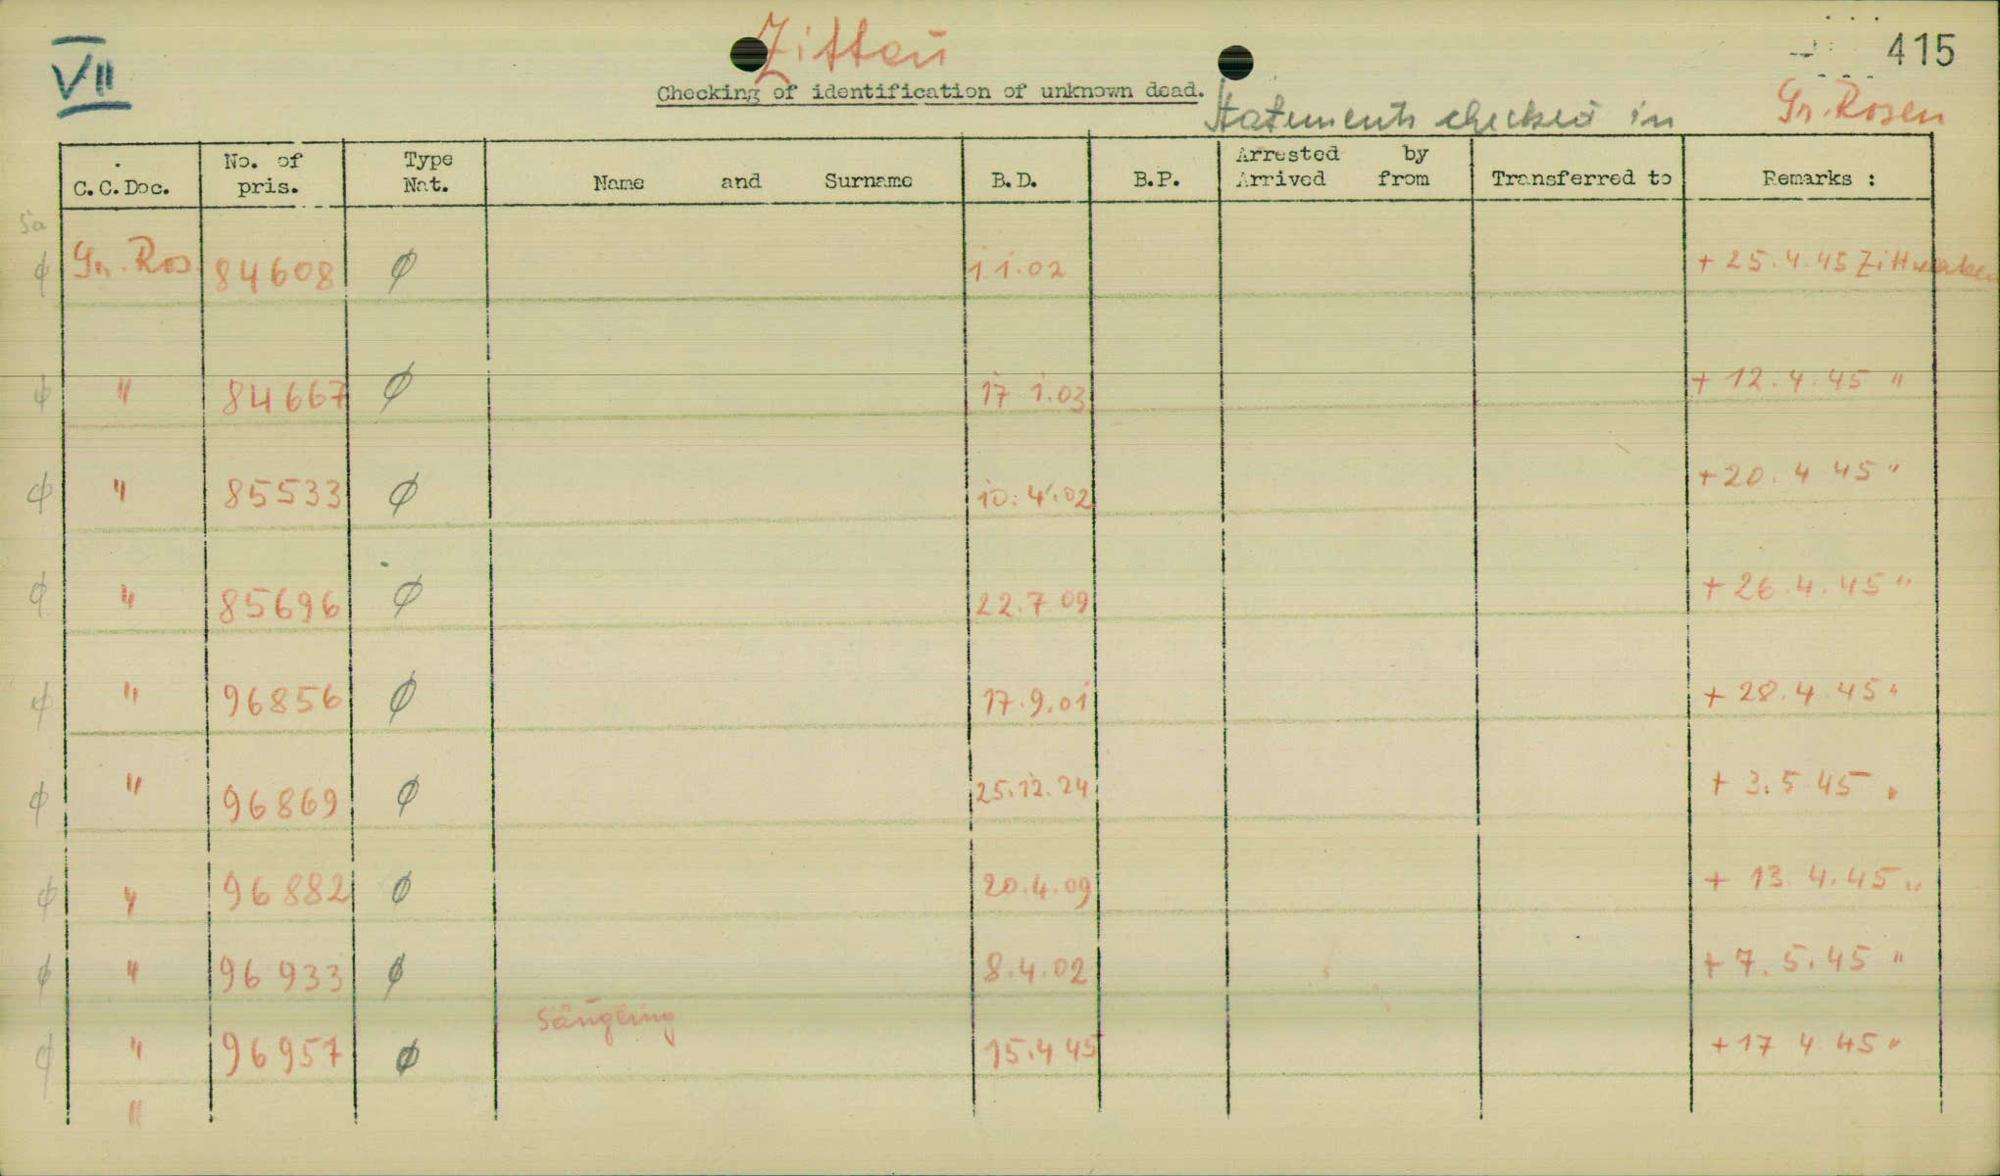 VII
Zittau
415
Checking of identification of unknown dead.
Statements checked in Gr. Rosen
C.C.Doc. No. of pris. Type Nat. Name and Surname B.D. B.P. Arrested by Arrived from Transferred to Remarks :
Gr. Ros. 84608 ∅ 1.1.02 + 25.4.45 Zittwerke
" 84667 ∅ 17 1.03 + 12.4.45 "
" 85533 ∅ 10.4.02 + 20.4 45 "
" 85696 ∅ 22.7 09 + 26.4.45 "
" 96856 ∅ 17.9.01 + 28.4.45 "
" 96869 ∅ 25.12.24 + 3.5 45 "
" 96882 ∅ 20.4.09 + 13.4.45 "
" 96933 ∅ 8.4.02 + 7.5.45 "
" 96957 ∅ Säugling 15.4 45 + 17 4 45 "
"